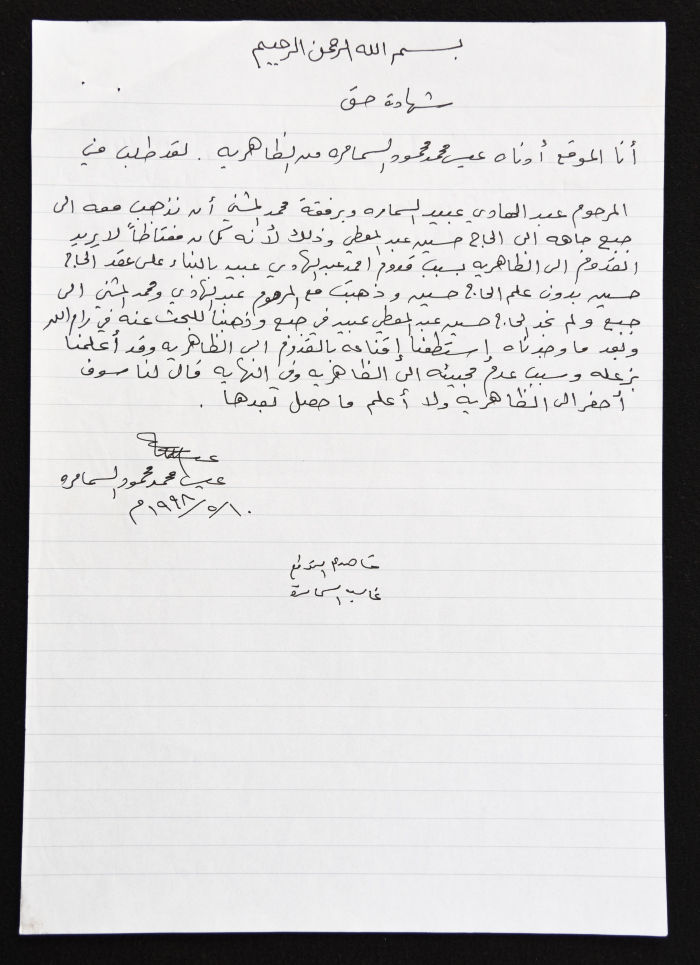 بسم الله الرحمن الرحيم
شهادة حق
أنا الموقع أدناه عيسى محمد محمود السمامره من الظاهريه . لقد طلب مني
المرحوم عبد الهادي عبيد السماره وبرفقة محمد المشني أن نذهب معه الى
جبع جاهه الى الحاج حسين عبد المعطي وذلك لأنه كان مغتاظاً لا يريد
القدوم الى الظاهريه بسبب قدوم احمد عبد الهادي عبيد بالبناء على عقد الحاج
حسين بدون علم الحاج حسين وذهبت مع المرحوم عبد الهادي ومحمد المشني الى
جبع ولم نجد الحاج حسين عبد المعطي عبيد في جبع وذهبنا للبحث عنه في رام الله
وبعد ما وجدناه إستطعنا إقناعه بالقدوم الى الظاهريه وقد أعلمنا
بزعله وسبب عدم مجيئه الى الظاهريه وفي النهايه قال لنا سوف
أحضر الى الظاهريه ولا أعلم ما حصل بعدها .
عيسى محمد محمود السمامره
١٠/٥/١٩٩٨م
غالب السمامرة